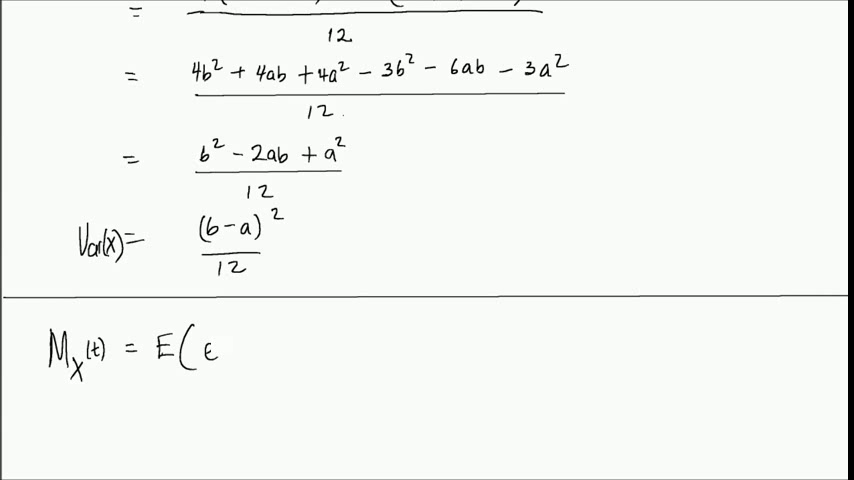 =
12
= 4b² + 4ab + 4a² - 3b² - 6ab - 3a²
12
= b² - 2ab + a²
12
Var(X) = (b-a)²
12
M_X(t) = E( e